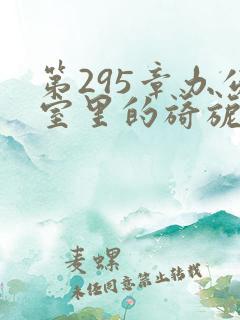 第295章办公
室里的旖旎
麦螺
未经同意禁止转载